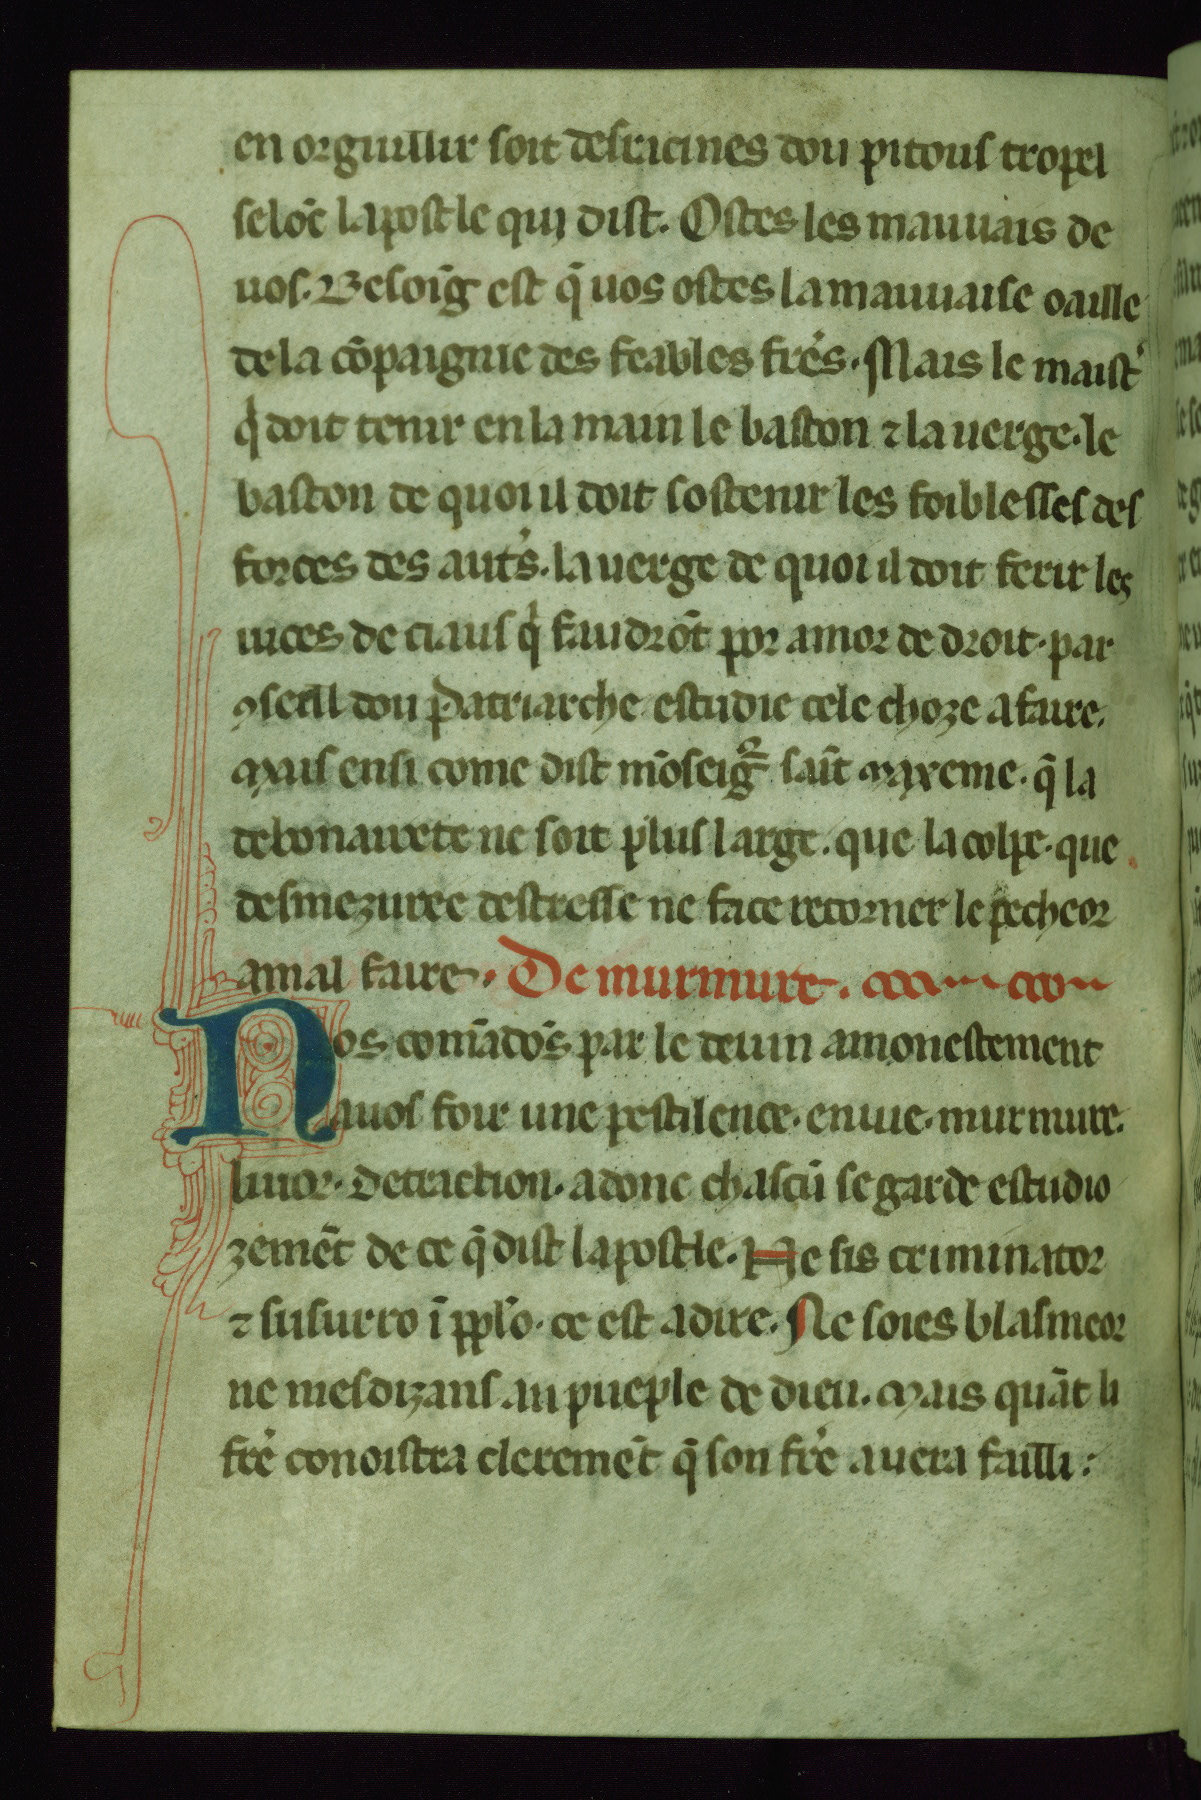 en orguillir soit desracines dou pitous tropel
selōc lapostle qui dist. Ostes les mauuais de
uos. Besoīg est q̄ uos ostes la mauuaise oaille
de la cōpaignie des feables fre̓s. Mais le maist̓
qͥ doit tenir en la main le baston ⁊ la uerge. le
baston de quoi il doit sostenir les foiblesses des
forces des aut̓s. la uerge de quoi il doit ferir les
uices de ciaus qͥ faudrōt por amor de droit. par
ꝯseill dou Patriarche estudie cele choze a faire.
Mais ensi come dist mōseig̅r saīt Maxeme. q̄ la
debonairete ne soit plus large. que la colpe. que
desmezuree destresse ne face retorner le pecheor
a mal faire. De murmure.
Nos comādōs par le deuin amonestement
a uos foir une pestilence. enuie. murmure.
liuor. Detraction. adonc chascū se garde estudio
zemēt de ce q̄ dist lapostle. Ne sis criminator
⁊ susurro ī pplo̓. ce est a dire. Ne soies blasmeor
ne mesdizans au pueple de dieu. Mais quāt li
fre̓ conoistra cleremēt q̄ son fre̓ auera failli :